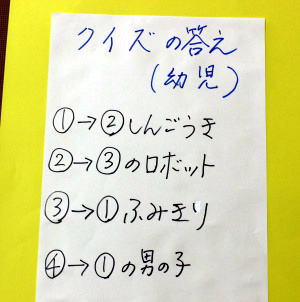 クイズの答え
(幼児)
①→②しんごうき
②→③のロボット
③→①ふみきり
④→①の男の子